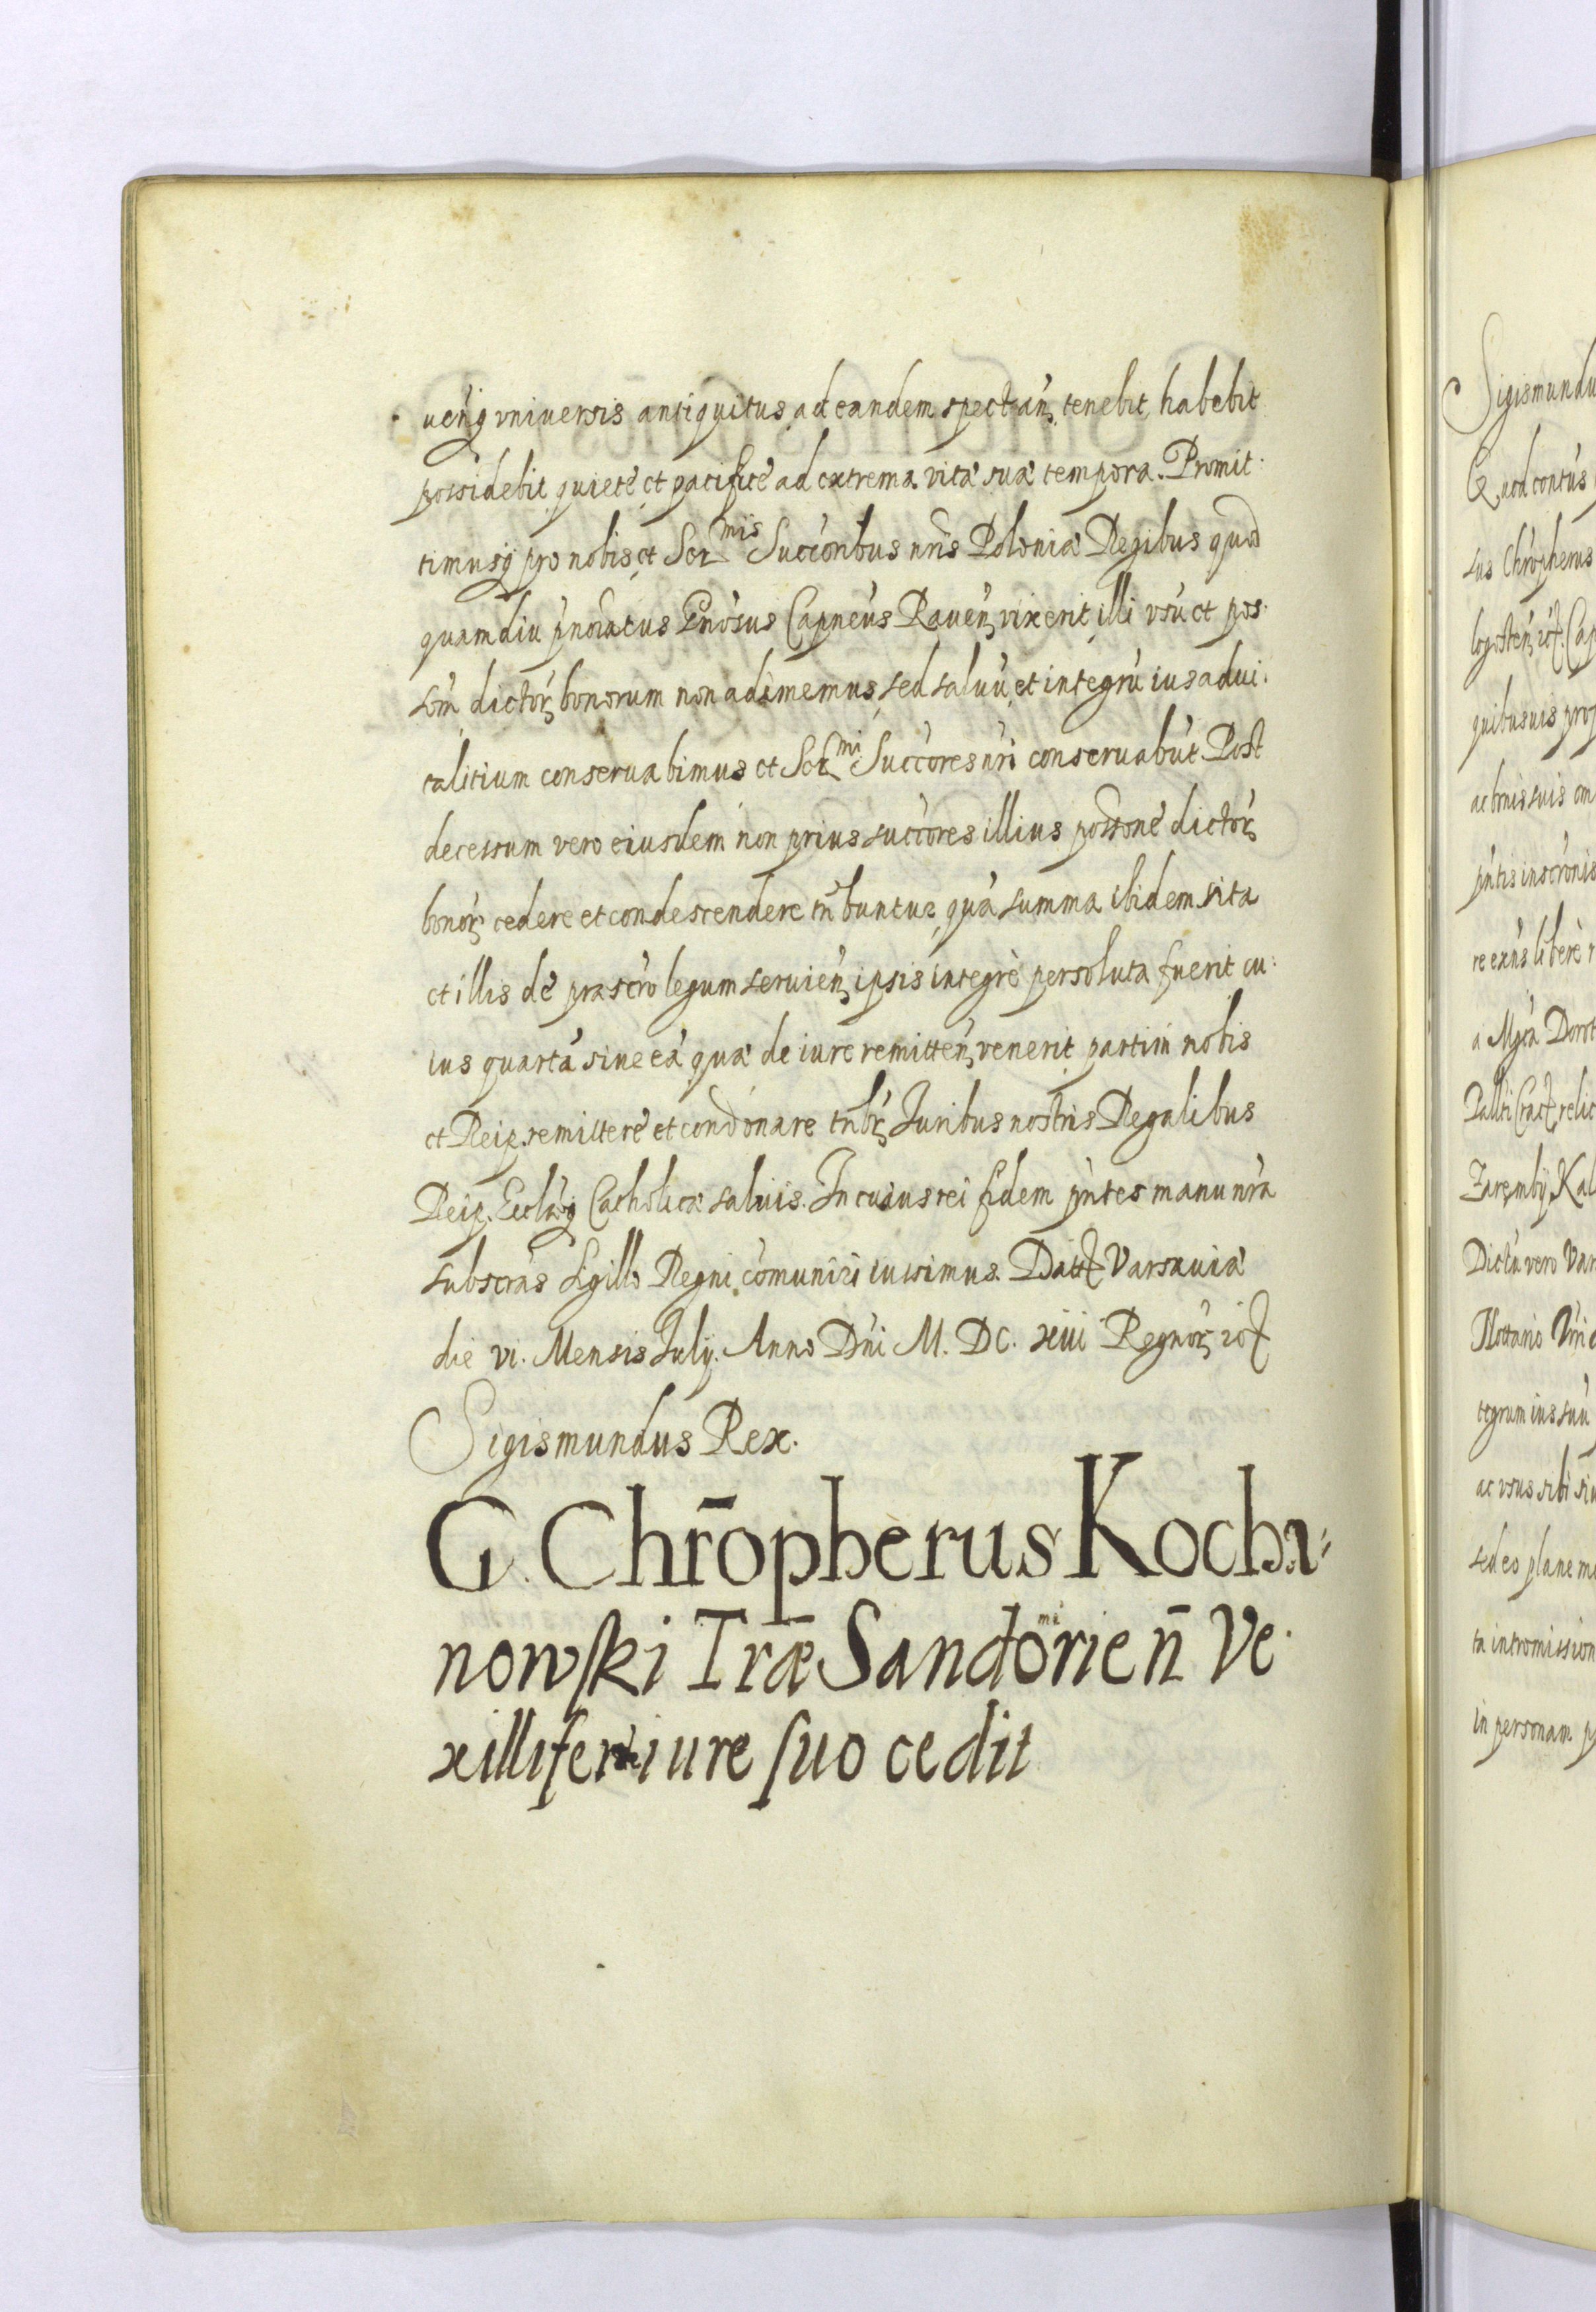 uenq̃ vniuersis antiquitus ad eandem spectan̄ tenebit, habebit
possidebit quietè et pacificè ad extrema vitæ suæ tempora. Promit
timusq̃ pro nobis et Ser^mis Succoribus nris Poloniæ Regibus quod
quamdiu pnoiatus Gnosus Capneus Rauen̄ vixerit illi vsū et pos
som̄ dictor̄ bonorum non adimemus, sed saluū et integrū ius adui
talitium conseruabimus et Ser^mi Succores nri conseruabūt. Post
decessum vero eiusdem non prius succores illius possone dictor̄
bonor̄ cedere et condescendere tn̄buntur, quā summa ibidem sita
et illis de præscro legum seruien̄ ipsis integrè persoluta fuerit cu
ius quartā siue eā quæ de iure remitten̄ venerit partim nobis
et Reip. remittere et condonare tnbr̄ Juribus nostris Regalibus
Reip. Ecclæq̃ Catholicæ saluis. In cuius rei fidem pntes manu nra
subscras Sigillo Regni comuniri iussimus. Datt Varsauiæ
die vi. Mensis Julij. Anno Dni M. DC. xiii Regnor̄
Sigismundus Rex.
G. Chrōpherus Kocha
nowski Trǣ Sandomirien̄ Ve
xillifer iure suo cedit
Sigismundu
Quod contūs
sus Chropherus
quibusuis prop
ac bonis suis om
pntis inscronis
re exns liberè r
a Mgca Dorot
relic
Zaremby Kal
Dictā vero Var
tegrum ius suū
ac vsus sibi
sed eo plane me
ta intromission
in personam p